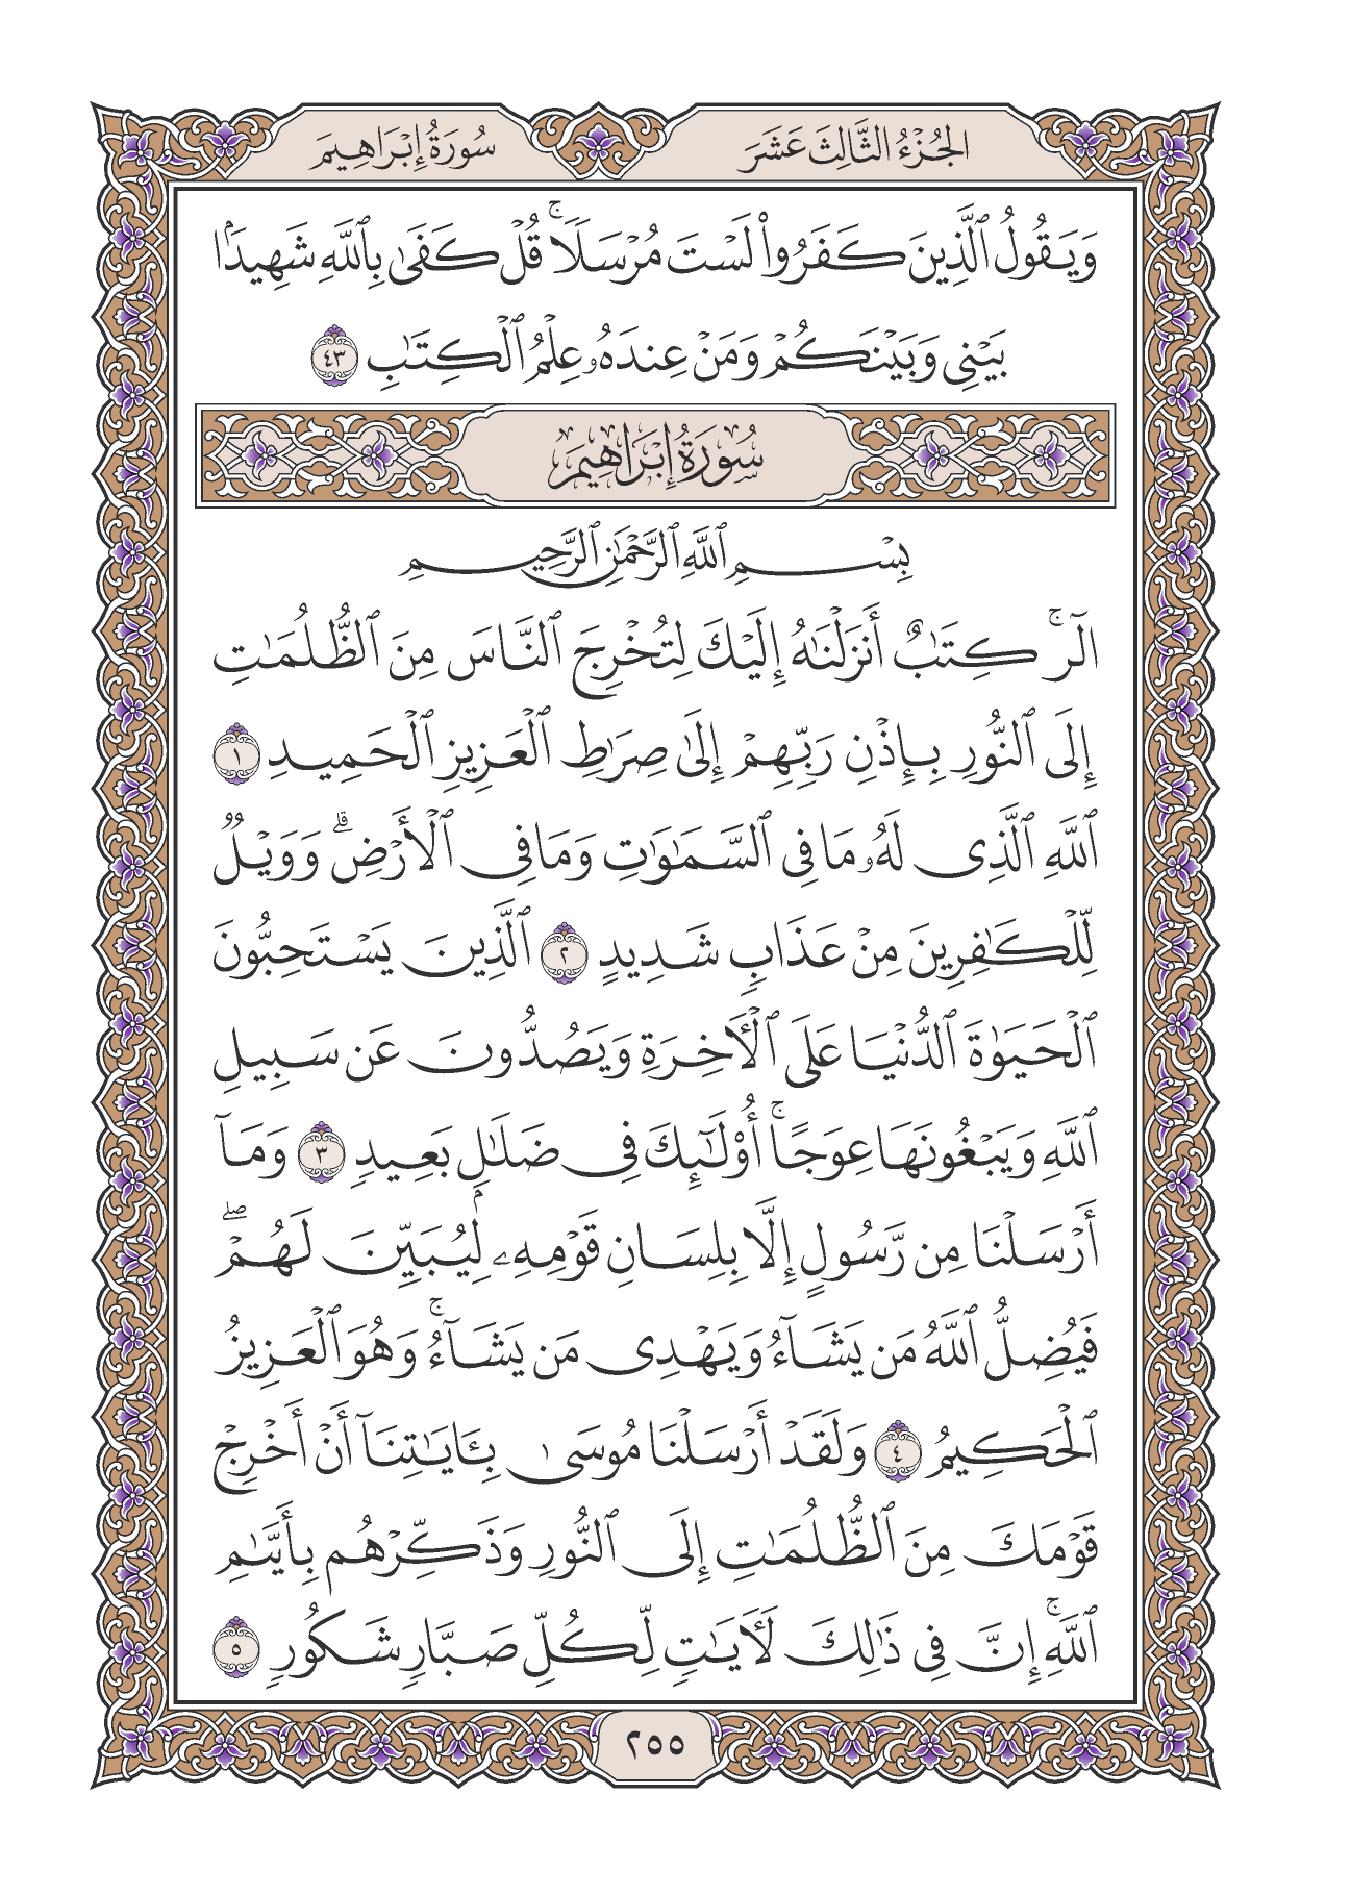 الجُزْءُ الثَّالِثَ عَشَرَ
سُورَةُ إِبْرَاهِيمَ
وَيَقُولُ ٱلَّذِينَ كَفَرُواْ لَسْتَ مُرْسَلٗاۚ قُلْ كَفَىٰ بِٱللَّهِ شَهِيدَۢا
بَيْنِي وَبَيْنَكُمْ وَمَنْ عِندَهُۥ عِلْمُ ٱلْكِتَٰبِ ٤٣
سُورَةُ إِبْرَاهِيمَ
بِسْمِ ٱللَّهِ ٱلرَّحْمَٰنِ ٱلرَّحِيمِ
الٓرۚ كِتَٰبٌ أَنزَلْنَٰهُ إِلَيْكَ لِتُخْرِجَ ٱلنَّاسَ مِنَ ٱلظُّلُمَٰتِ
إِلَى ٱلنُّورِ بِإِذْنِ رَبِّهِمْ إِلَىٰ صِرَٰطِ ٱلْعَزِيزِ ٱلْحَمِيدِ ١
ٱللَّهِ ٱلَّذِي لَهُۥ مَا فِي ٱلسَّمَٰوَٰتِ وَمَا فِي ٱلْأَرْضِۗ وَوَيْلٞ
لِّلْكَٰفِرِينَ مِنْ عَذَابٖ شَدِيدٍ ٢ ٱلَّذِينَ يَسْتَحِبُّونَ
ٱلْحَيَوٰةَ ٱلدُّنْيَا عَلَى ٱلْأٓخِرَةِ وَيَصُدُّونَ عَن سَبِيلِ
ٱللَّهِ وَيَبْغُونَهَا عِوَجًاۚ أُوْلَٰٓئِكَ فِي ضَلَٰلِۭ بَعِيدٖ ٣ وَمَآ
أَرْسَلْنَا مِن رَّسُولٍ إِلَّا بِلِسَانِ قَوْمِهِۦ لِيُبَيِّنَ لَهُمْۖ
فَيُضِلُّ ٱللَّهُ مَن يَشَآءُ وَيَهْدِي مَن يَشَآءُۚ وَهُوَ ٱلْعَزِيزُ
ٱلْحَكِيمُ ٤ وَلَقَدْ أَرْسَلْنَا مُوسَىٰ بِـَٔايَٰتِنَآ أَنْ أَخْرِجْ
قَوْمَكَ مِنَ ٱلظُّلُمَٰتِ إِلَى ٱلنُّورِ وَذَكِّرْهُم بِأَيَّىٰمِ
ٱللَّهِۚ إِنَّ فِي ذَٰلِكَ لَأٓيَٰتٖ لِّكُلِّ صَبَّارٖ شَكُورٖ ٥
٢٥٥